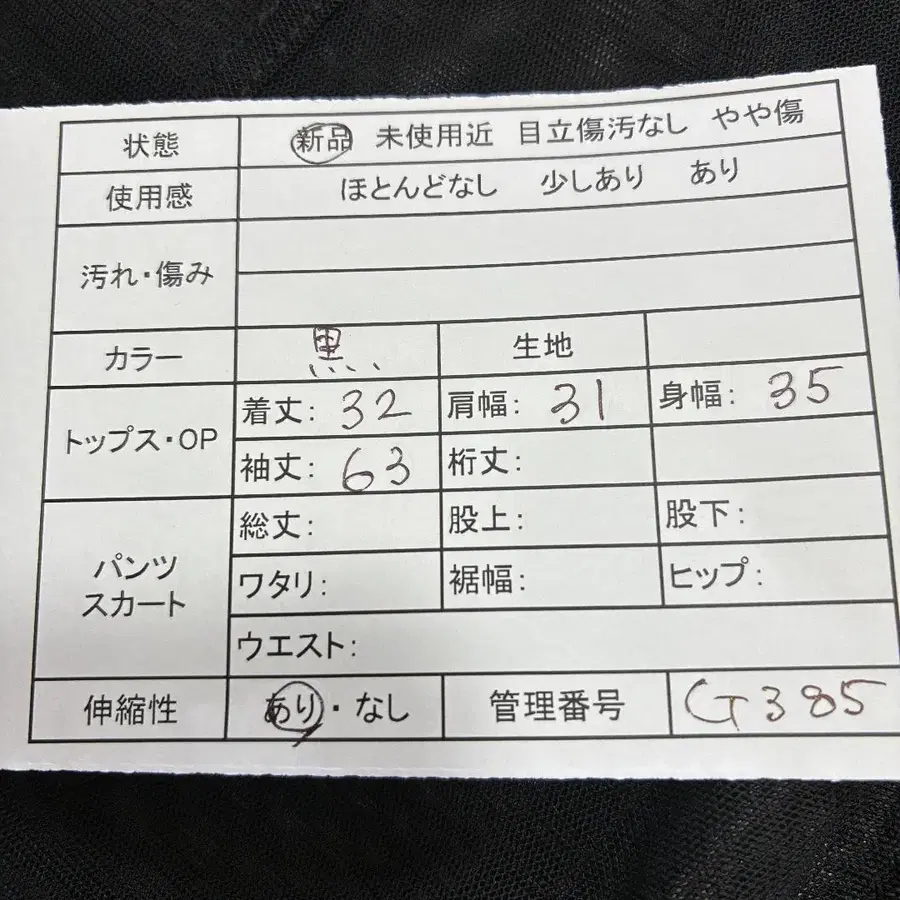 状態 新品 未使用近 目立傷汚なし やや傷
使用感 ほとんどなし 少しあり あり
汚れ・傷み
カラー 黒 生地
トップス・OP 着丈: 32 肩幅: 31 身幅: 35
袖丈: 63 裄丈:
パンツ スカート 総丈: 股上: 股下:
ワタリ: 裾幅: ヒップ:
ウエスト:
伸縮性 あり・なし 管理番号 G385